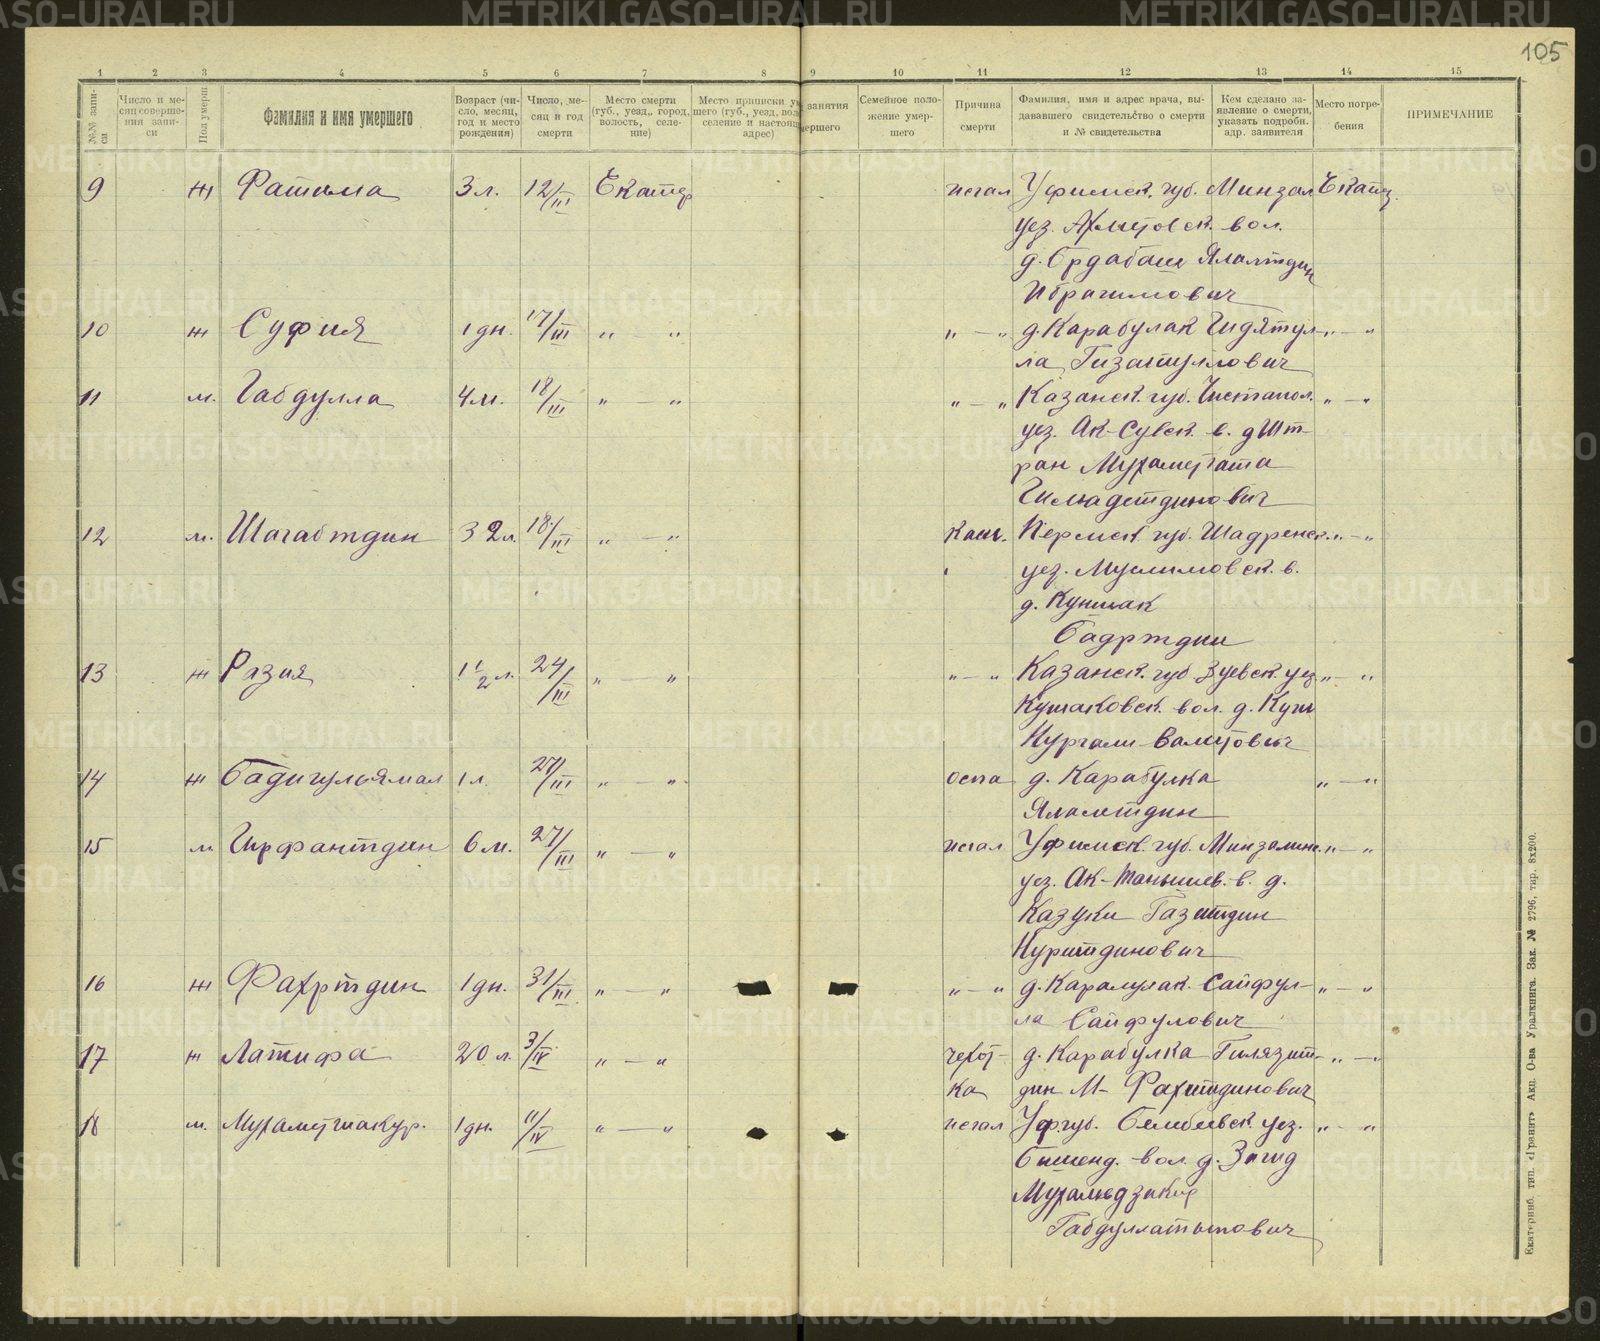 105
1 2 3 4 5 6 7 8 9 10 11 12 13 14 15
№№ записи
Число и месяц совершения записи
Пол умерш
Фамилия и имя умершего
Возраст (число, месяц, год и место рождения)
Число, месяц и год смерти
Место смерти (губ., уезд., город, волость, селение)
Место приписки ум
шего (губ., уезд, вол
селение и настоящ
адрес)
занятия
мершего
Семейное положение умершего
Причина смерти
Фамилия, имя и адрес врача, выдававшего свидетельство о смерти и № свидетельства
Кем сделано заявление о смерти, указать подробн. адр. заявителя
Место погребения
ПРИМЕЧАНИЕ
9 ж Фатима 3 л. 12/III Екатер Уфимск. губ. Минзал Екатер.
уез. вол.
д. Ялалтдин
Ибрагимович
10 ж Суфия 1 дн. 17/III „ — „ „ — „ д. Карабулак Гидятул- „ — „
ла Гизатуллович
11 м. Габдулла 4 м. 18/III „ — „ „ — „ Казанск. губ. Чистапол. „ — „
уез. Ак-Сувск. в. д Шт-
ран
12 м. Шагабтдин 32 л. 18/III „ — „ Каш. Пермск губ. Шадренск. „ — „
уез. Муслимовск. в.
д. Куншак
Бадртдин
13 ж Разия 1 1/2 л. 24/III „ — „ „ — „ Казанск. губ уез „ — „
вол. д.
Нургали Валитович
14 ж Бадигульямал 1 л. 27/III „ — „ оспа д. Карабулка „ — „
Ялалетдин
15 м Гирфантдин 6 м. 27/III „ — „ Уфимск. губ. Минзелинс. „ — „
уез. Ак-Танышев. в. д.
Казуки Газитдин
Нуритдинович
16 ж Фахртдин 1 дн. 31/III „ — „ „ — „ д. Сайфул- „ — „
ла Сайфулович
17 ж Латифа 20 л. 3/IV „ — „ чехот- д. Карабулка Гилязит- „ — „
ка дин М- Фахитдинович
18 м. Мухаметшакур. 1 дн. 11/IV „ — „ Уф губ. Белебеевск. уез. „ — „
вол. д.
Габдуллатыпович
Екатеринб. тип. «Гранит» Акц. О-ва Уралкнига. Зак. № 2796, тир. 8х200.
METRIKI.GASO-URAL.RU